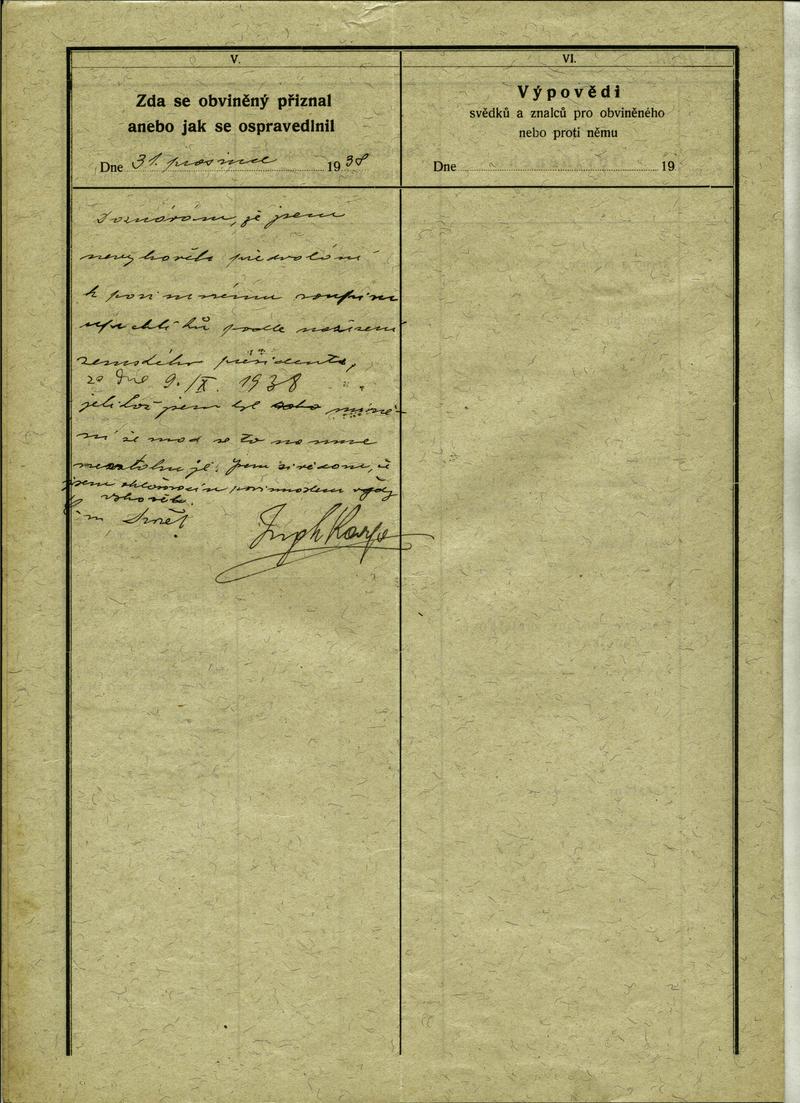 V.
Zda se obviněný přiznal
anebo jak se ospravedlnil
Dne 31. prosince 1938
Doznávám, že jsem
nevyhověl předvolání
k povinnému soupisu
uprchlíků podle nařízení
zemského presidenta,
ze dne 9./X. 1938
jelikož jsem byl míně-
ní že mod se to na mne
nevztahuje. Jsem si vědom, že
jsem povinnostem vždy
vyhověl.
VI.
Výpovědi
svědků a znalců pro obviněného
nebo proti němu
Dne 19